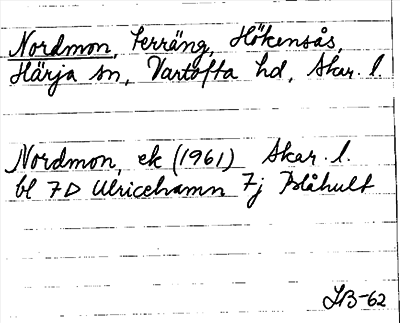 Nordmon, Terräng, Hökensås,
Härja sn, Vartofta hd, Skar. l.
Nordmon, ek (1961) Skar. l.
bl 7D Ulricehamn 7j Blåhult
IB-62